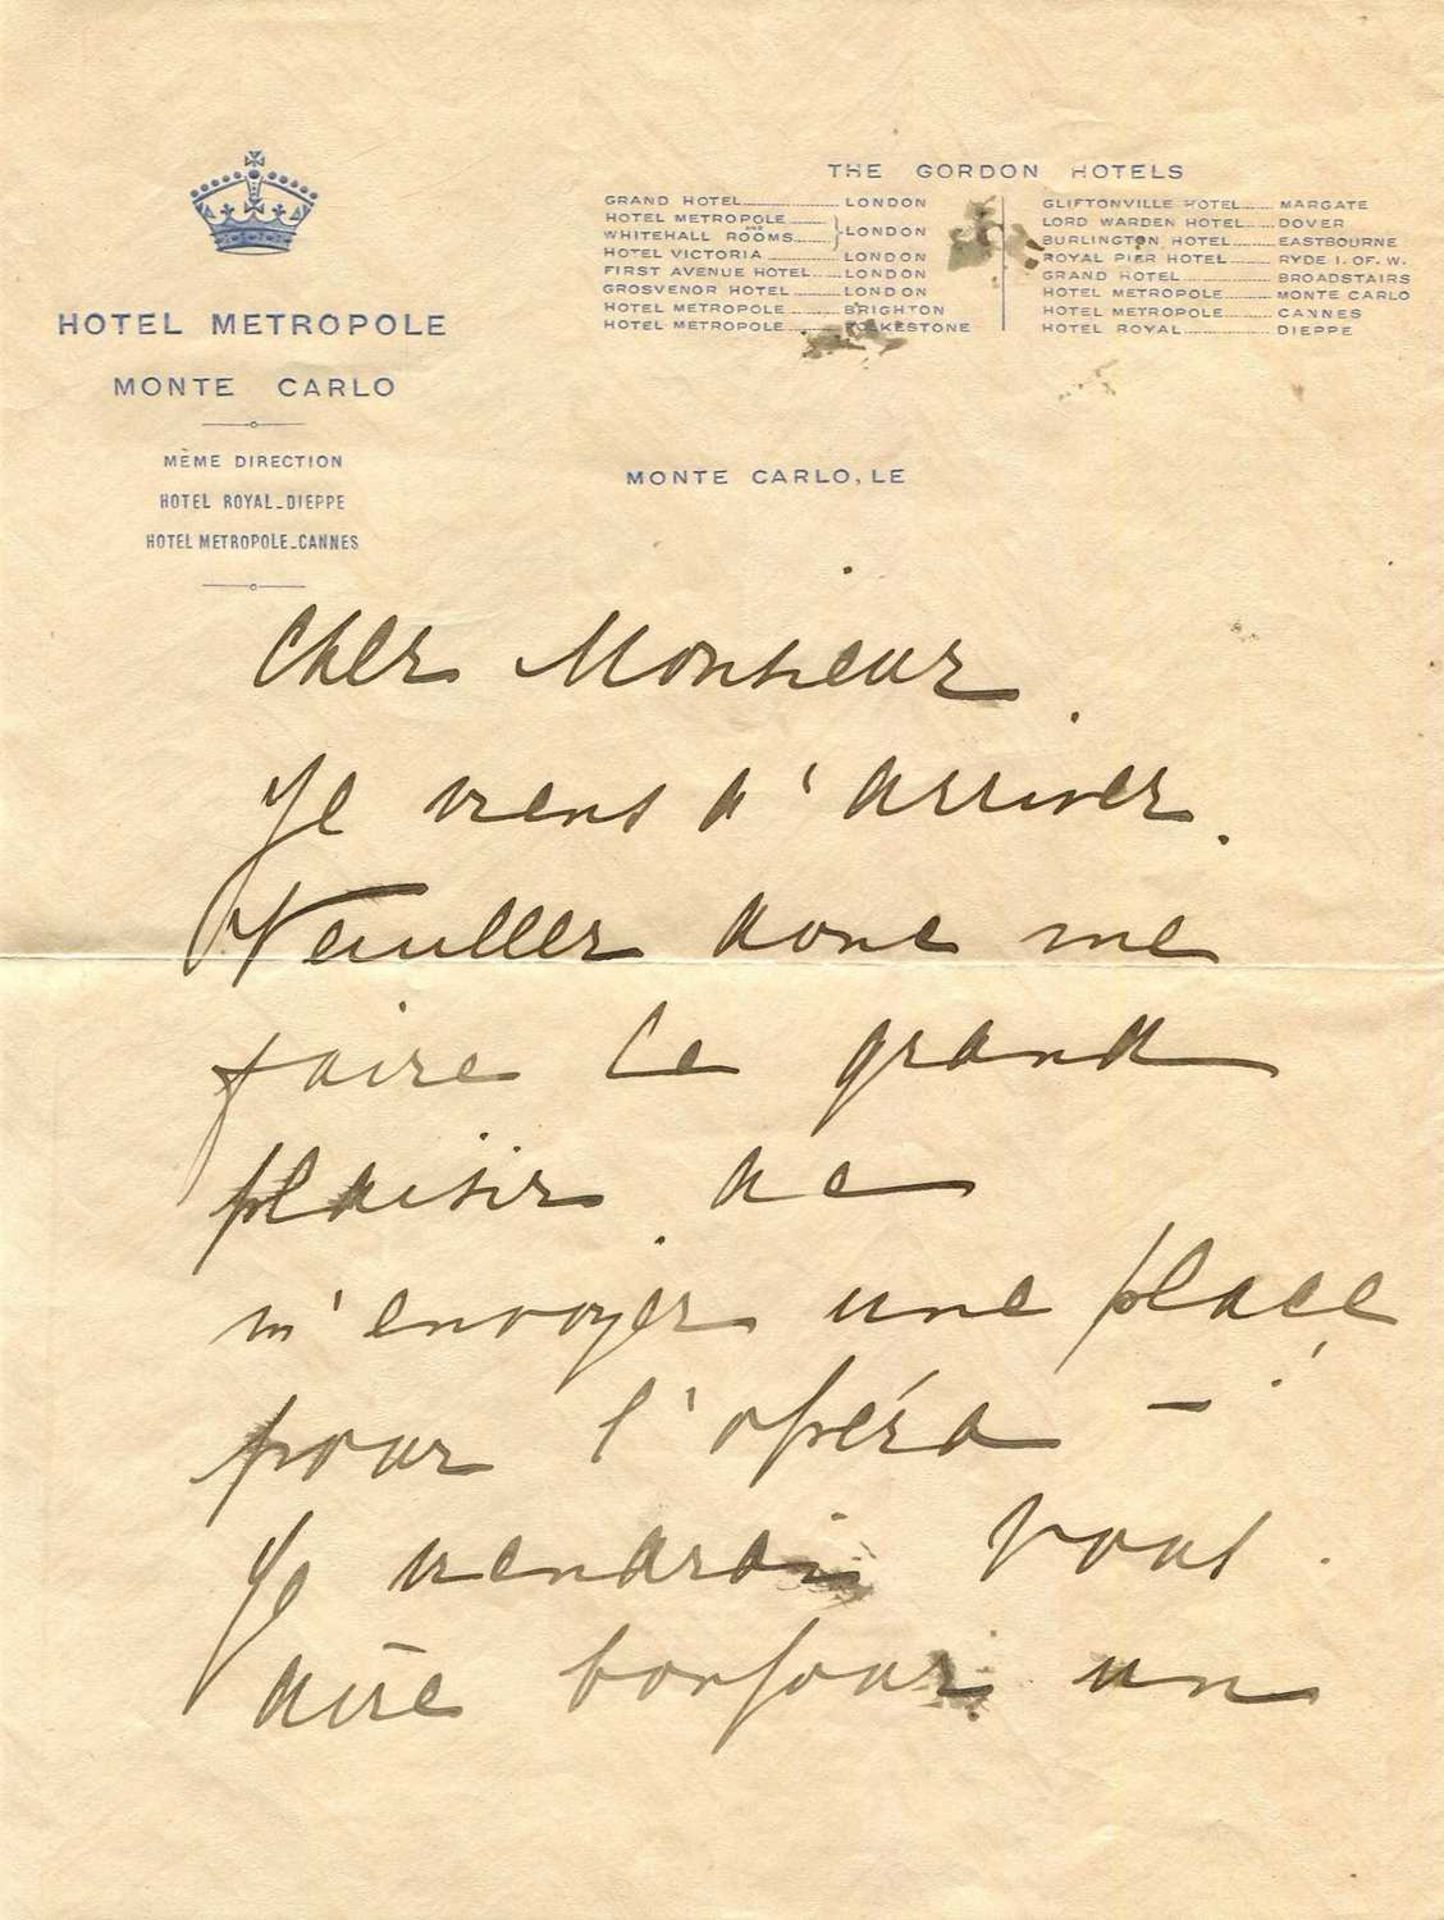 THE GORDON HOTELS
GRAND HOTEL LONDON
HOTEL METROPOLE
AND
WHITEHALL ROOMS LONDON
HOTEL VICTORIA LONDON
FIRST AVENUE HOTEL LONDON
GROSVENOR HOTEL LONDON
HOTEL METROPOLE BRIGHTON
HOTEL METROPOLE FOLKESTONE
CLIFTONVILLE HOTEL MARGATE
LORD WARDEN HOTEL DOVER
BURLINGTON HOTEL EASTBOURNE
ROYAL PIER HOTEL RYDE I. OF. W.
GRAND HOTEL BROADSTAIRS
HOTEL METROPOLE MONTE CARLO
HOTEL METROPOLE CANNES
HOTEL ROYAL DIEPPE
HOTEL METROPOLE
MONTE CARLO
MÈME DIRECTION
HOTEL ROYAL_DIEPPE
HOTEL METROPOLE_CANNES
MONTE CARLO, LE
Cher Monsieur
Je viens d'arriver.
Veuillez donc me
faire le grand
plaisir de
m'envoyer une place
pour l'opéra –
Je viendrai vous
dire bonjour un